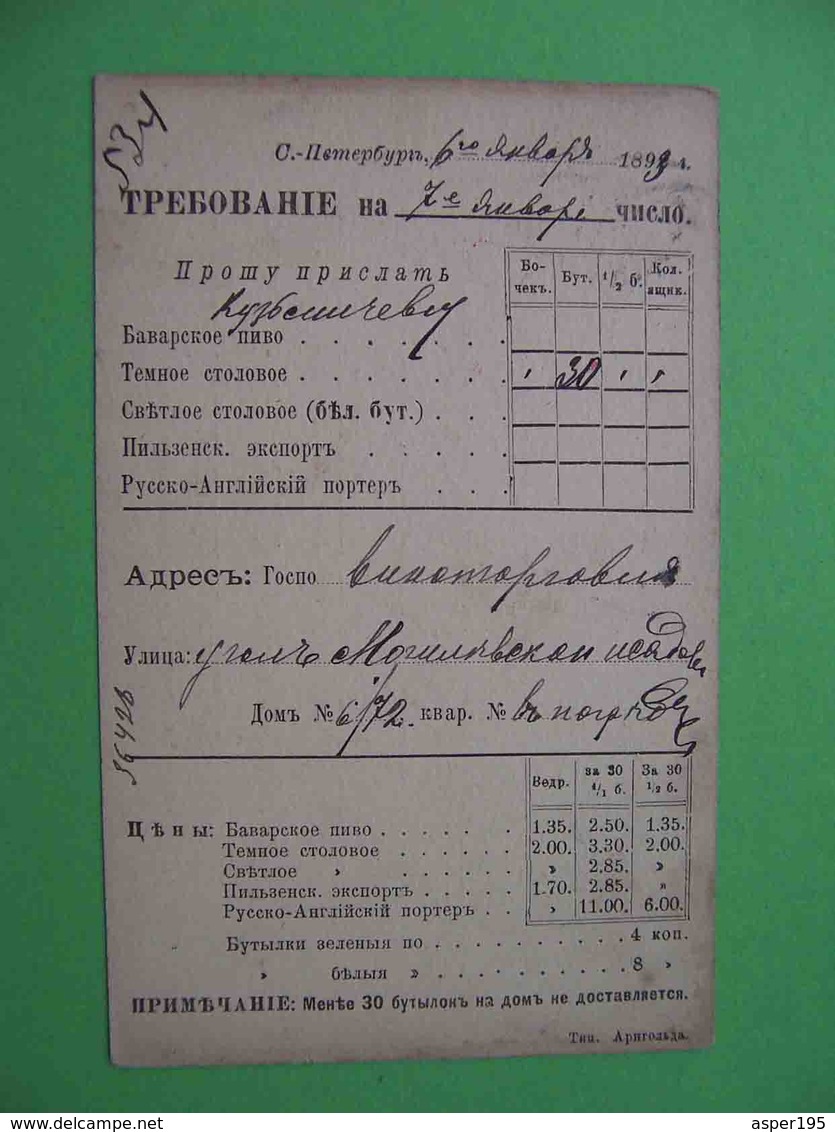 534
С.-Петербургъ, 6го Января 1893 г.
ТРЕБОВАНІЕ на 7е Января число.
Прошу прислать
Бо-чекъ. Бут. 1/2 б. Кол. ящик.
Кузьмичеву
Баварское пиво
Темное столовое 30
Свѣтлое столовое (бѣл. бут.)
Пильзенск. экспортъ
Русско-Англійскій портеръ
Адресъ: Госпо виноторговля
Улица: уголъ Могилевской и садовой
Домъ № 6/72 квар. № въ погребъ
36428
Ведр. за 30 1/1 б. За 30 1/2 б.
Цѣны: Баварское пиво . . . . . . 1.35. 2.50. 1.35.
Темное столовое . . . . . . 2.00. 3.30. 2.00.
Свѣтлое » . . . . . . » 2.85. »
Пильзенск. экспортъ . . . . . 1.70. 2.85. »
Русско-Англійскій портеръ . . » 11.00. 6.00.
Бутылки зеленыя по . . . . . . . . . . 4 коп.
» бѣлыя » . . . . . . . . . . 8 »
ПРИМѢЧАНІЕ: Менѣе 30 бутылокъ на домъ не доставляется.
Тип. Арнгольда.
www.delcampe.net
asper195